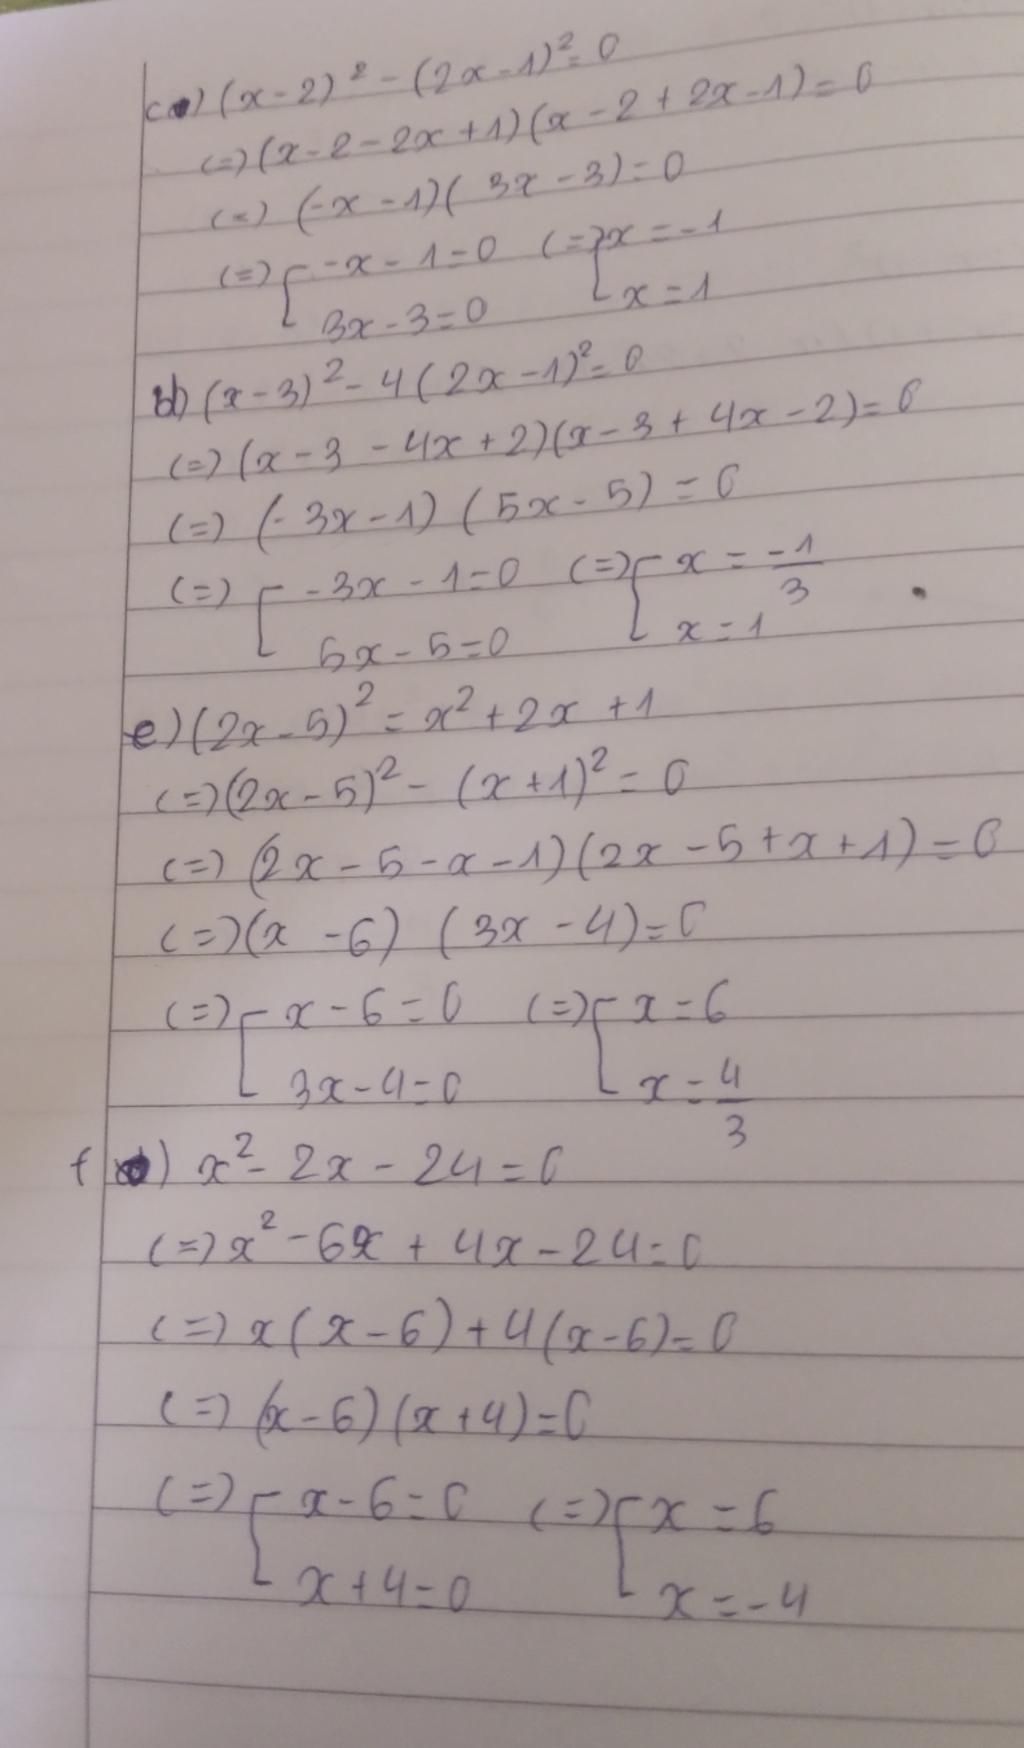 c) (x-2)² - (2x-1)² = 0
(=) (x-2-2x+1)(x-2+2x-1) = 0
(=) (-x-1)(3x-3) = 0
(=) [ -x-1=0 (=) [ x = -1
3x-3=0 x = 1
b) (x-3)² - 4(2x-1)² = 0
(=) (x-3-4x+2)(x-3+4x-2) = 0
(=) (-3x-1)(5x-5) = 0
(=) [ -3x-1=0 (=) [ x = -1/3
5x-5=0 x = 1
e) (2x-5)² = x²+2x+1
(=) (2x-5)² - (x+1)² = 0
(=) (2x-5-x-1)(2x-5+x+1) = 0
(=) (x-6)(3x-4) = 0
(=) [ x-6=0 (=) [ x = 6
3x-4=0 x = 4/3
f) x² - 2x - 24 = 0
(=) x² - 6x + 4x - 24 = 0
(=) x(x-6) + 4(x-6) = 0
(=) (x-6)(x+4) = 0
(=) [ x-6=0 (=) [ x = 6
x+4=0 x = -4